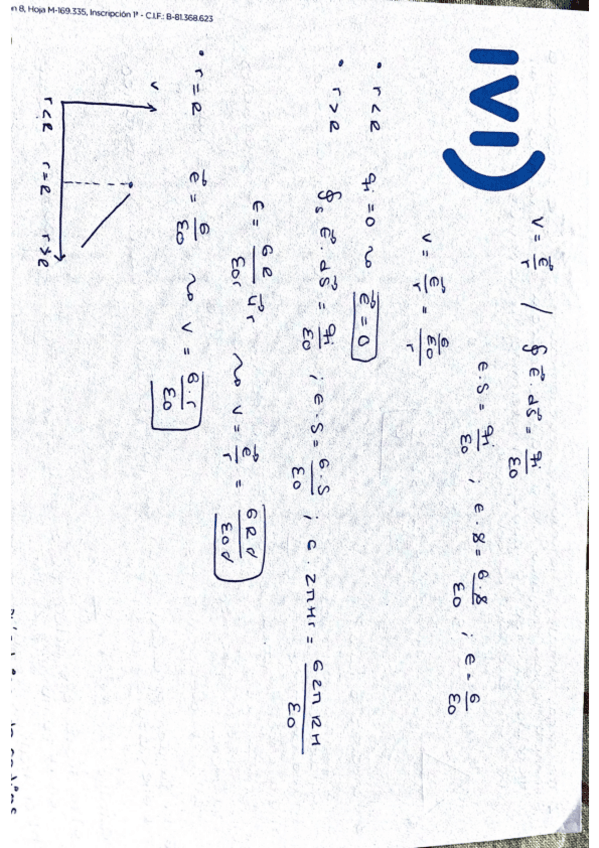 n 8, Hoja M-169.335, Inscripción 1ª - C.I.F.: B-81.368.623
IVI
V = e⃗/r / ∮ e⃗ · ds⃗ = qi/ε0
e·S = qi/ε0 ; e·S = σ·S/ε0 ; e = σ/ε0
V = e⃗/r = σ/ε0/r
• r < R qi = 0 ⇝ e⃗ = 0
• r > R ∮s e⃗ · ds⃗ = qi/ε0 ; e·S = σ·S/ε0 ; e · 2πHr = σ2πRH/ε0
e = σR/ε0r u⃗r ⇝ V = e⃗/r =
• r = R e⃗ = σ/ε0 ⇝ V = σ·r/ε0
V
r<R r=R r>R